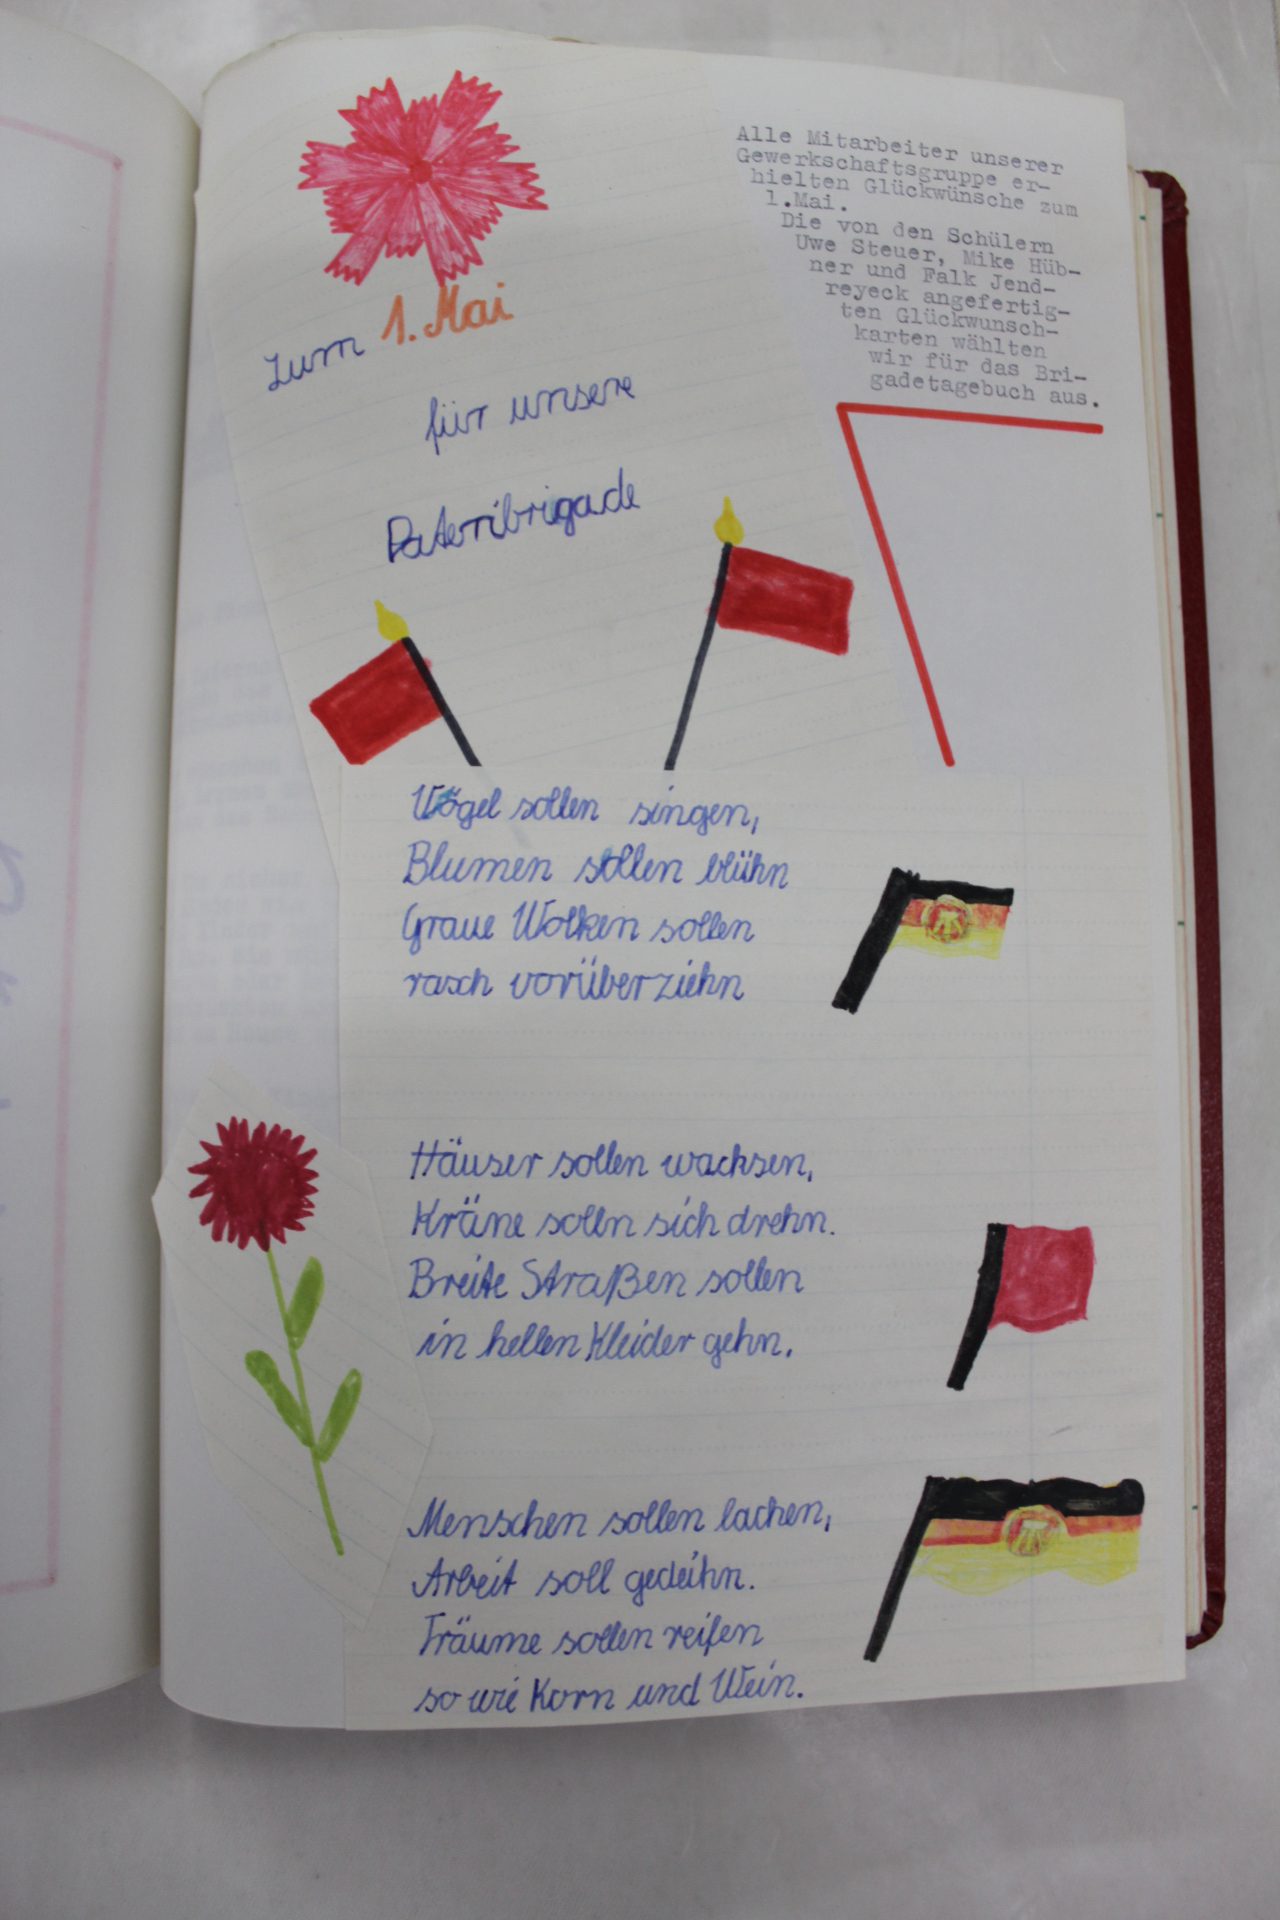 Alle Mitarbeiter unserer
Gewerkschaftsgruppe er-
hielten Glückwünsche zum
1.Mai.
Die von den Schülern
Uwe Steuer, Mike Hüb-
ner und Falk Jend-
reyeck angefertig-
ten Glückwunsch-
karten wählten
wir für das Bri-
gadetagebuch aus.
Zum 1. Mai
für unsere
Patenbrigade
Vögel sollen singen,
Blumen sollen blühn
Graue Wolken sollen
rasch vorüberziehn
Häuser sollen wachsen,
Kräne solln sich drehn.
Breite Straßen sollen
in hellen Kleider gehn.
Menschen sollen lachen,
Arbeit soll gedeihn.
Träume sollen reifen
so wie Korn und Wein.